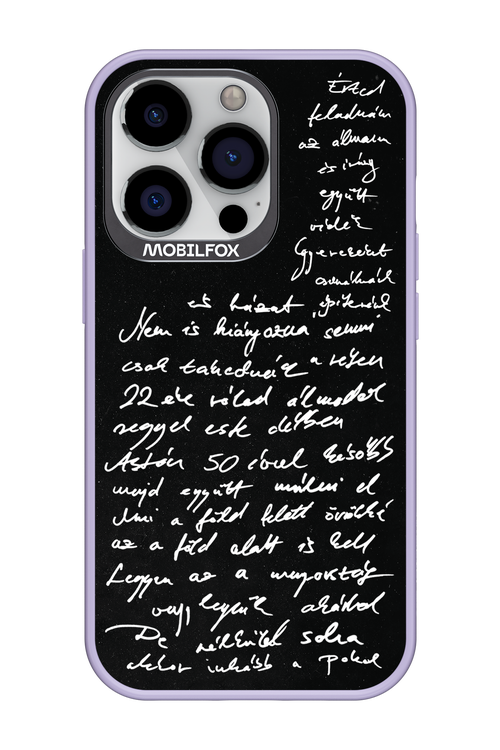 MOBILFOX
Érted
feladnám
az álmaim
és irány
együtt
vidék
Gyereket
csinálnánk
és házat építenénk
Nem is hiányozna semmi
csak takednék a réten
22 éve rólad álmodok
reggel este délben
Aztán 50 évvel később
majd együtt múlni el
Ami a föld felett örökké
az a föld alatt is kell
Legyen az a mennyország
vagy legyünk akárhol
De nélküled soha
akkor inkább a pokol